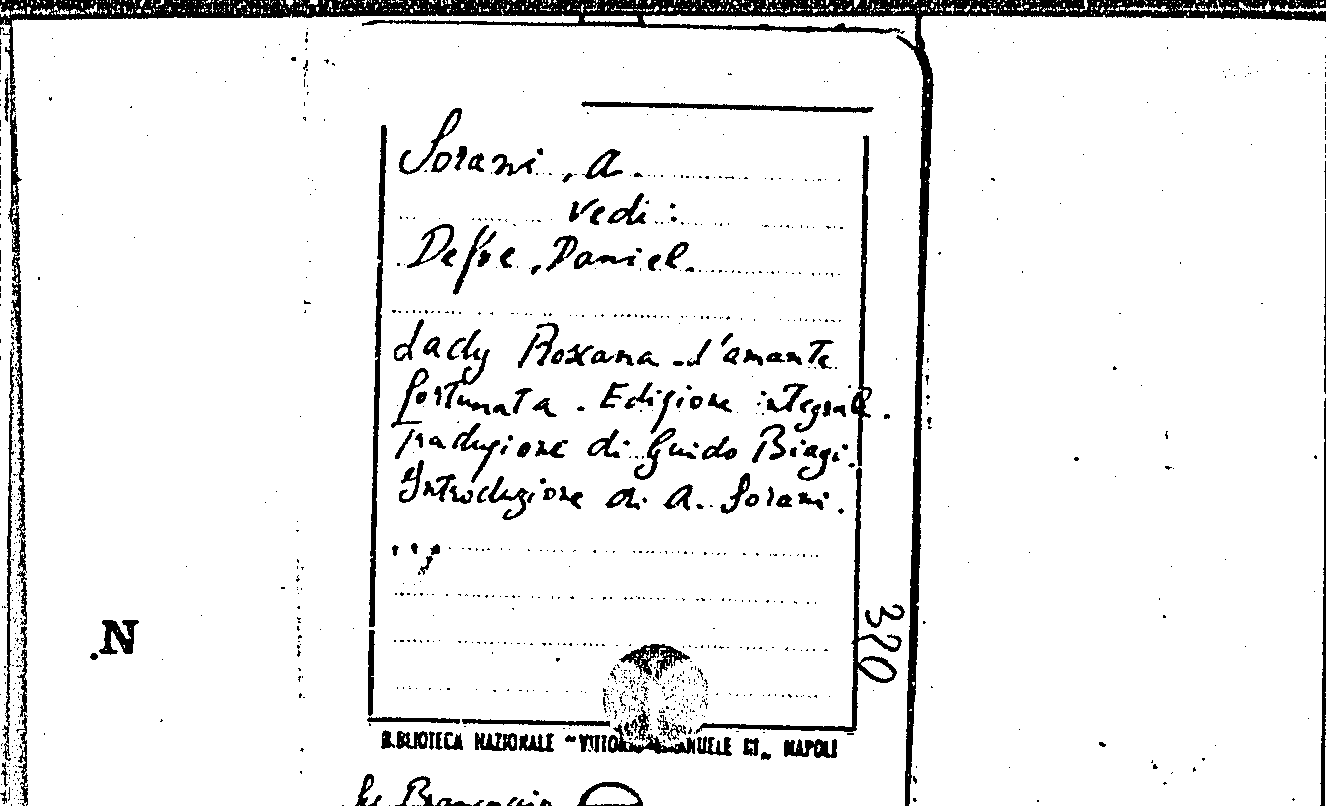 Sorani, A.
vedi:
Defoe, Daniel.
Lady Roxana - l'amante
fortunata. Edizione integrale.
Traduzione di Guido Biagi.
Introduzione di A. Sorani.
...
320
N
BIBLIOTECA NAZIONALE "VITTORIO EMANUELE III" NAPOLI